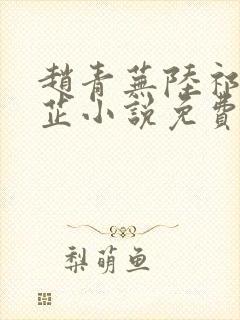 趙青蕪陸祁
芷小說免費
梨萌鱼